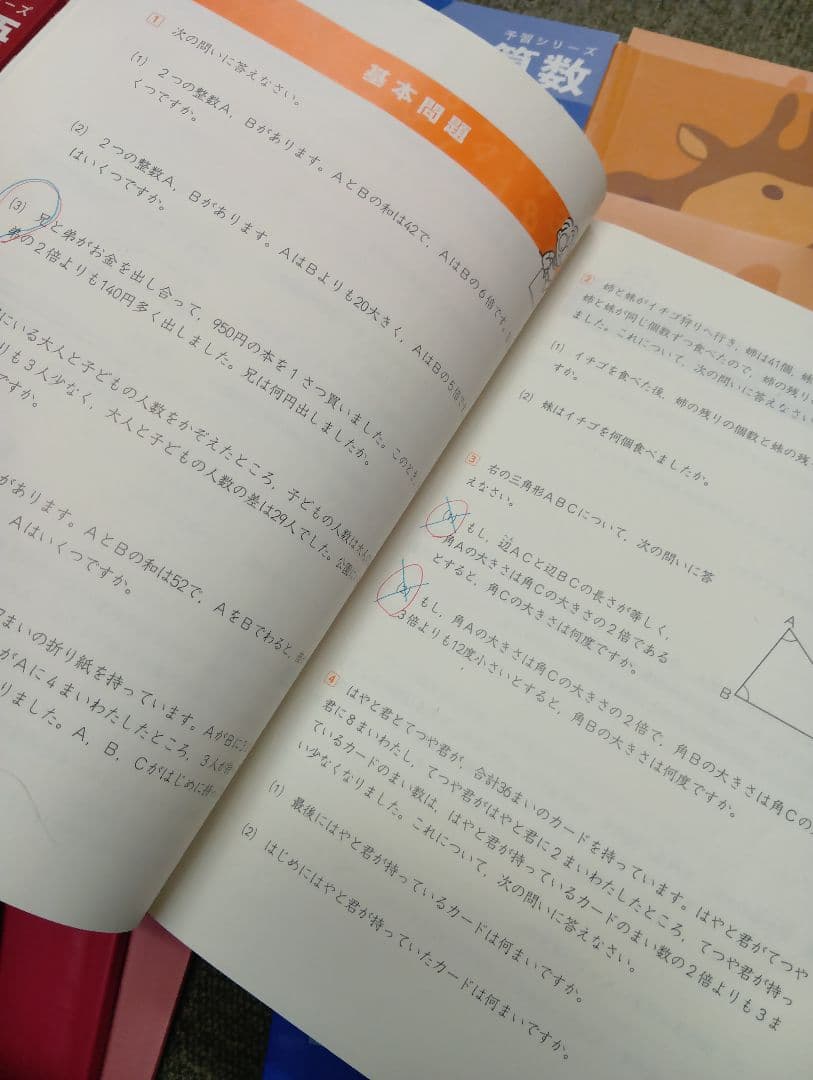 ーズ
五
予習シリーズ
算数
基本問題
1 次の問いに答えなさい。
(1) 2つの整数A，Bがあります。AとBの和は42で，AはBの6倍です。
くつですか。
(2) 2つの整数A，Bがあります。AはBよりも20大きく，AはBの5倍です
はいくつですか。
(3) 兄と弟がお金を出し合って，950円の本を1さつ買いました。このとき，
弟の2倍よりも140円多く出しました。兄は何円出しましたか。
にいる大人と子どもの人数をかぞえたところ，子どもの人数は大人
りも3人少なく，大人と子どもの人数の差は29人でした。公園に
ですか。
があります。AとBの和は52で，AをBでわると，
Aはいくつですか。
まいの折り紙を持っています。AがBに
がAに4まいわたしたところ，3人が
りました。A，B，Cがはじめに持
2 姉と妹がイチゴ狩りへ行き，姉は41個，妹
姉と妹が同じ個数ずつ食べたので，姉の残り
ました。これについて，次の問いに答えなさい
(1) イチゴを食べた後，姉の残りの個数と妹の残
すか。
(2) 妹はイチゴを何個食べましたか。
3 右の三角形ABCについて，次の問いに答
えなさい。
(1) もし，辺ACと辺BCの長さが等しく，
角Aの大きさは角Cの大きさの2倍である
とすると，角Cの大きさは何度ですか。
(2) もし，角Aの大きさは角Cの大きさの2倍で，角Bの大きさは角Cの
3倍よりも12度小さいとすると，角Bの大きさは何度ですか。
A
B
4 はやと君とてつや君が，合計36まいのカードを持っています。はやと君がてつや
君に8まいわたし，てつや君がはやと君に2まいわたしたところ，てつや君が持っ
ているカードのまい数は，はやと君が持っているカードのまい数の2倍よりも3ま
い少なくなりました。これについて，次の問いに答えなさい。
(1) 最後にはやと君が持っているカードは何まいですか。
(2) はじめにはやと君が持っていたカードは何まいですか。